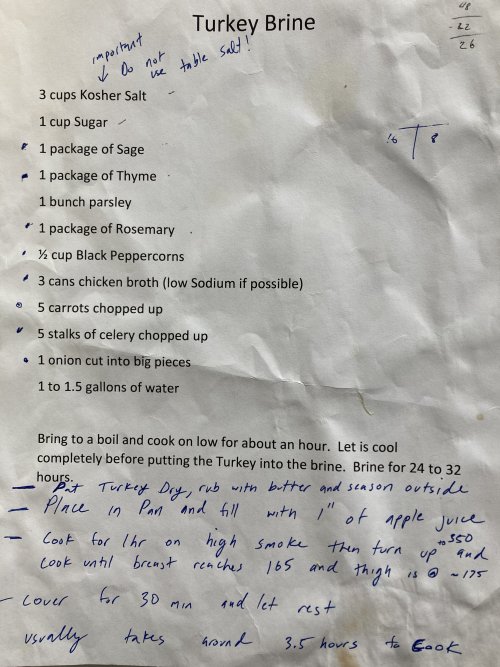 Turkey Brine
48
- 22
26
important
↓ Do not
use table salt!
3 cups Kosher Salt
1 cup Sugar
16 8
1 package of Sage
1 package of Thyme
1 bunch parsley
1 package of Rosemary
½ cup Black Peppercorns
3 cans chicken broth (low Sodium if possible)
5 carrots chopped up
5 stalks of celery chopped up
1 onion cut into big pieces
1 to 1.5 gallons of water
Bring to a boil and cook on low for about an hour.  Let is cool
completely before putting the Turkey into the brine.  Brine for 24 to 32
hours.
— Pat Turkey Dry, rub with butter and season outside
— Place in Pan and fill with 1" of apple juice
— Cook for 1hr on high smoke then turn up to 350 and
cook until breast reaches 165 and thigh is @ ~175
— cover for 30 min and let rest
usually takes around 3.5 hours to cook